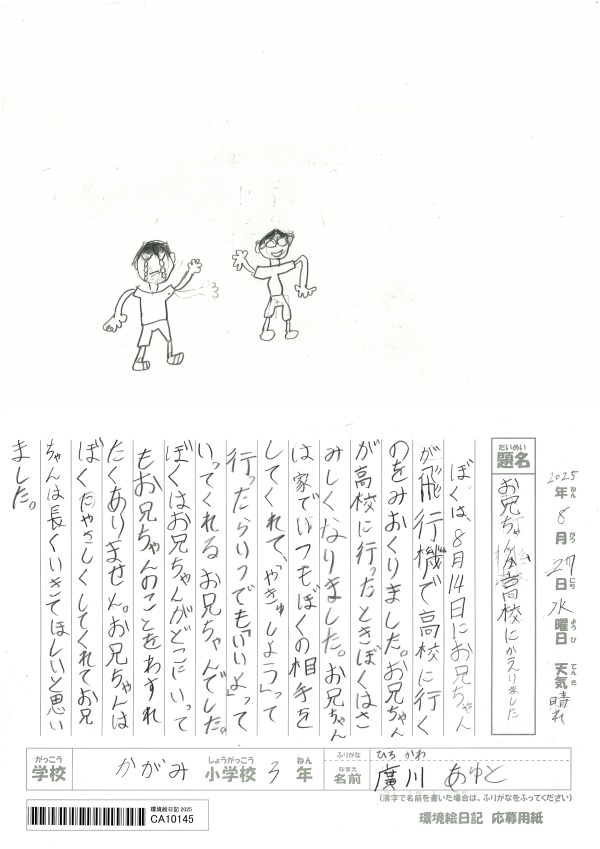 2025年ねん8月がつ27日にち水曜日ようび 天気てんき晴れ
だいめい
題名
お兄ちゃんが高校にかえりました
ぼくは、8月14日にお兄ちゃん
が飛行機で高校に行く
のをみおくりました。お兄ちゃん
が高校に行ったときぼくはさ
みしくなりました。お兄ちゃん
は家でいつもぼくの相手を
してくれて、「やきゅしよう」って
行ったらいつでも「いいよ」って
いってくれるお兄ちゃんでした。
ぼくはお兄ちゃんがどこにいって
もお兄ちゃんのことをわすれ
たくありません。お兄ちゃんは
ぼくたやさしくしてくれてお兄
ちゃんは長くいきてほしいと思い
ました。
がっこう しょうがっこう ねん
学校 かがみ 小学校 3 年
ふりがな ひろ かわ
なまえ
名前 廣川 あゆと
(漢字で名前を書いた場合は、ふりがなをふってください)
環境絵日記 2025
CA10145
環境絵日記 応募用紙